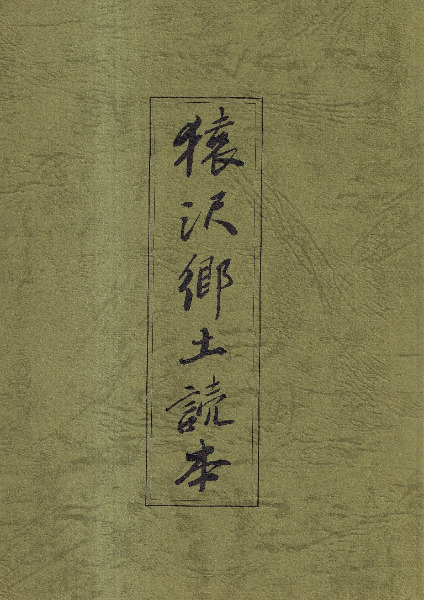 猿沢郷土読本